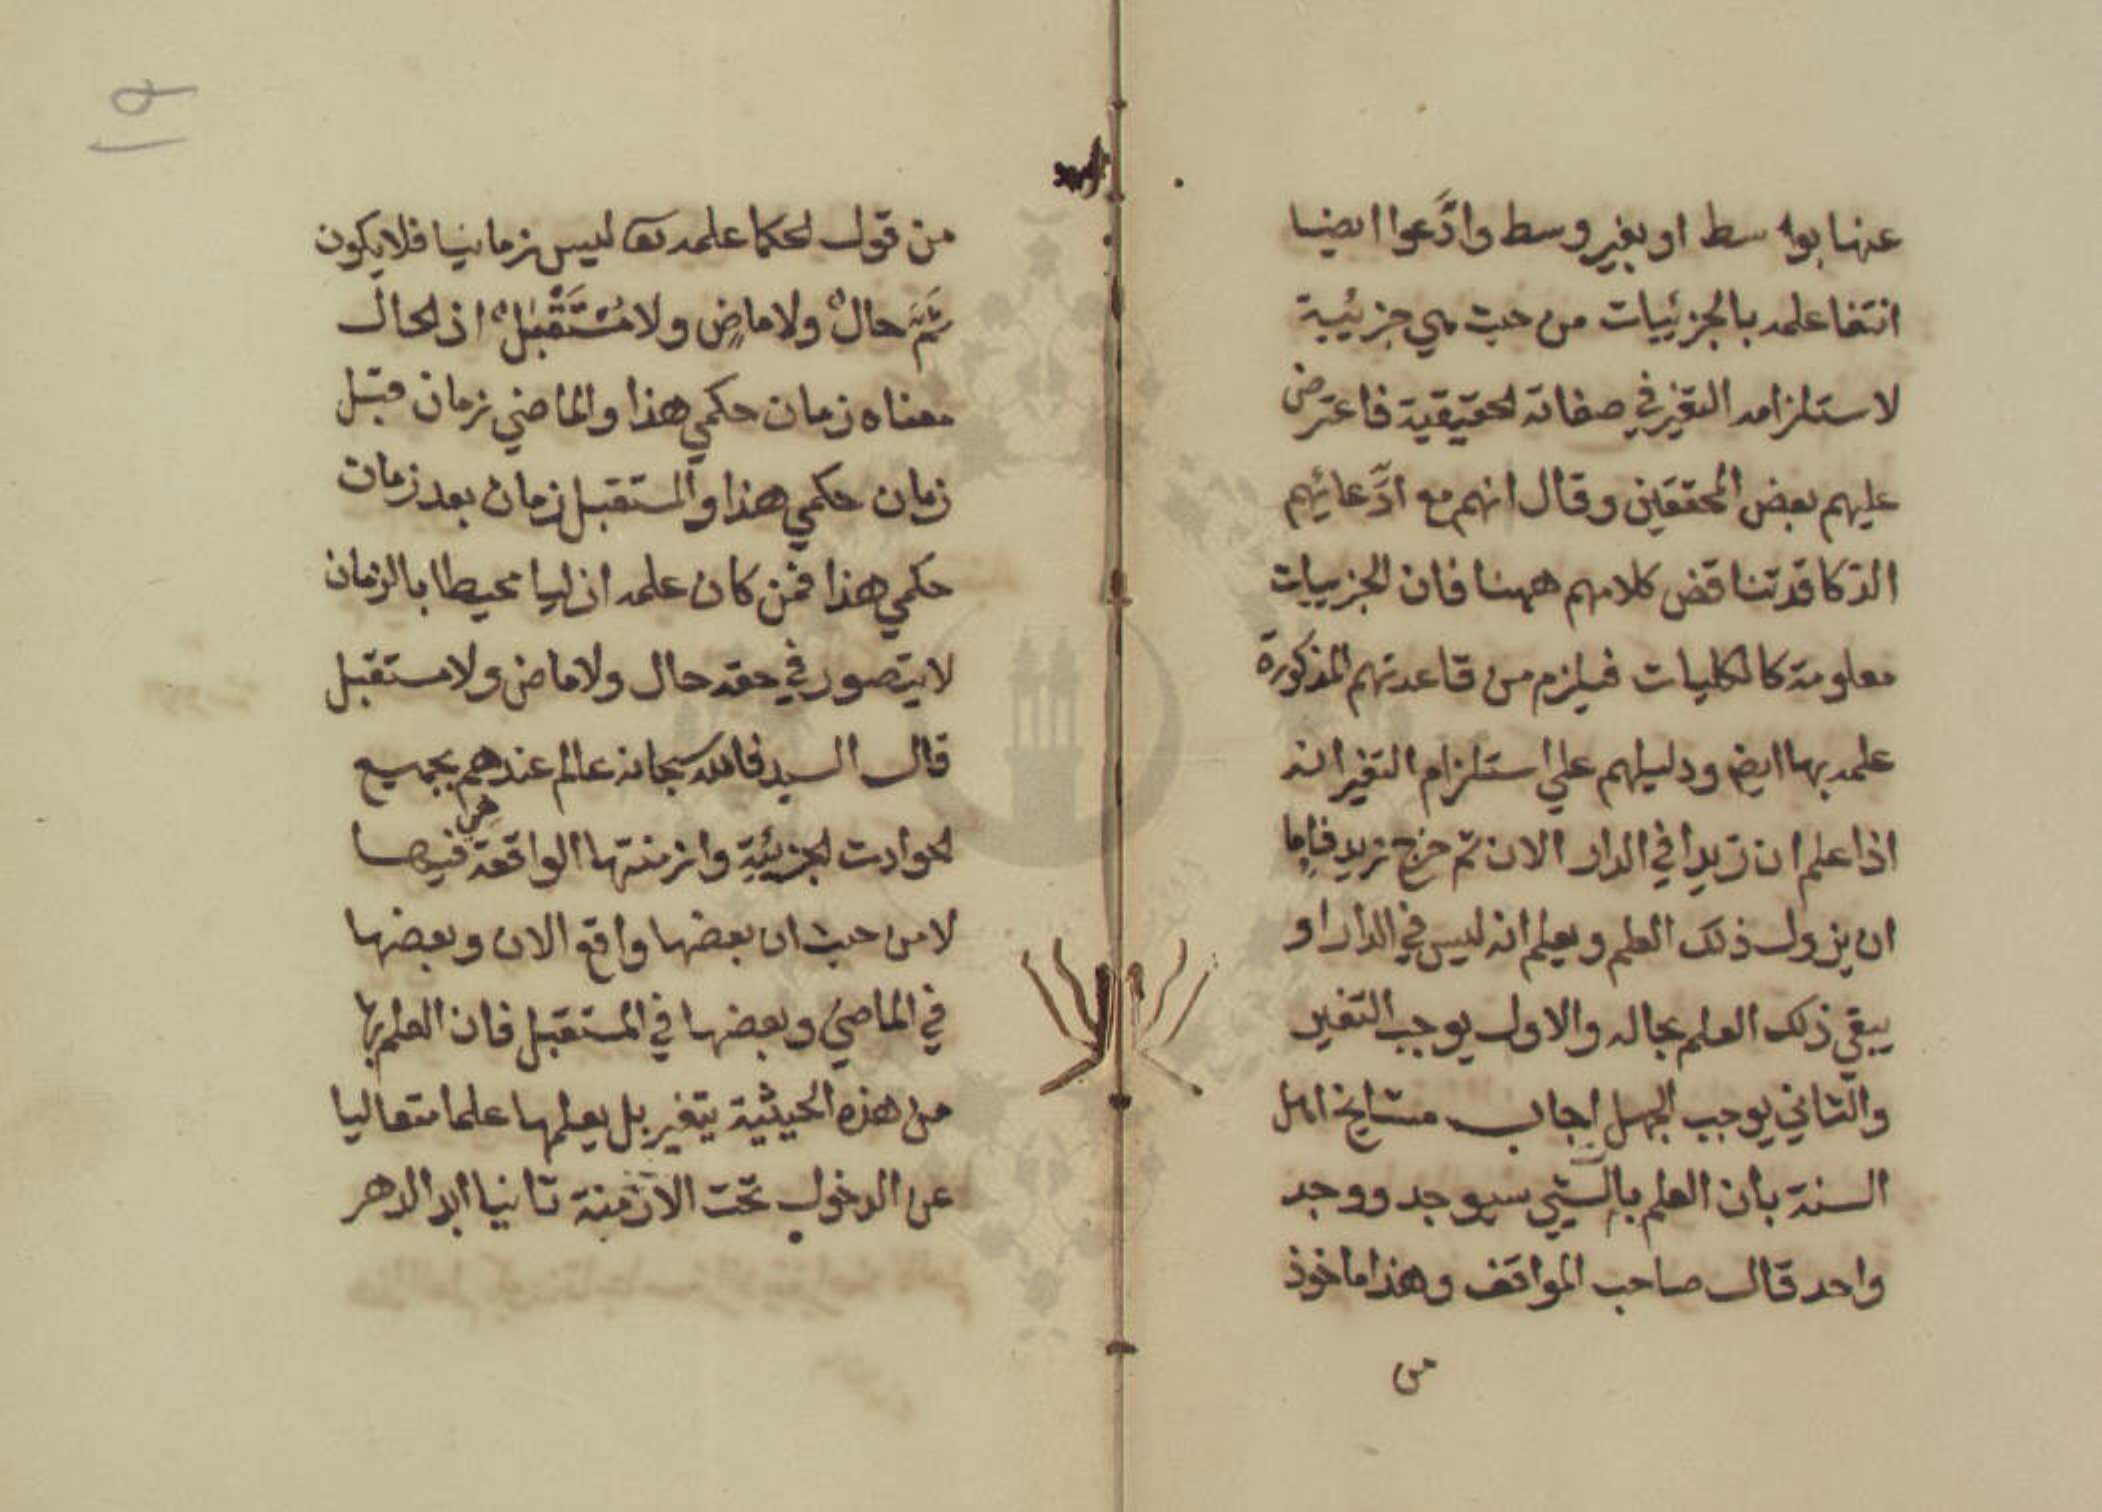 عنها بواسطة او بغير وسط وادَّعوا ايضا
انتفا علمه بالجزئيات من حيث هي جزئية
لاستلزامه التغير في صفاته الحقيقية فاعترض
عليهم بعض المحققين وقال انهم مع ادَّعائهم
الذكا قد تناقض كلامهم ههنا فان الجزييات
معلومة كالكليات فيلزم من قاعدتهم المذكورة
علمه بها ايض ودليلهم علي استلزام التغير انه
اذا علم ان زيدا في الدار الان ثم خرج زيد فاما
ان يزول ذلك العلم ويعلم انه ليس في الدار او
يبقي ذلك العلم بحاله والاول يوجب التغير
والثاني يوجب الجهل اجاب مشايخ اهل
السنة بان العلم بالشي سيوجد ووجد
واحد قال صاحب المواقف وهذا ماخوذ
من
من قول الحكما علمه تعا ليس زمانيا فلا يكون
ثَمَّ حالٌ ولا ماضٍ ولا مُسْتَقْبَلٌ اذ الحال
معناه زمان حكمي هذا والماضي زمان قبل
زمان حكمي هذا والمستقبل زمان بعد زمان
حكمي هذا فمن كان علمه ازليا محيطا بالزمان
لا يتصور في حقه حال ولا ماض ولا مستقبل
قال السيد فالله سبحانه عالم عندهم بجميع
الحوادث الجزئية وازمنتها الواقعة هي فيها
لا من حيث ان بعضها واقع الان وبعضها
في الماضي وبعضها في المستقبل فان العلم بها
من هذه الحيثية يتغير بل يعلمها علما متعاليا
عن الدخول تحت الازمنة ثانيا ابد الدهر